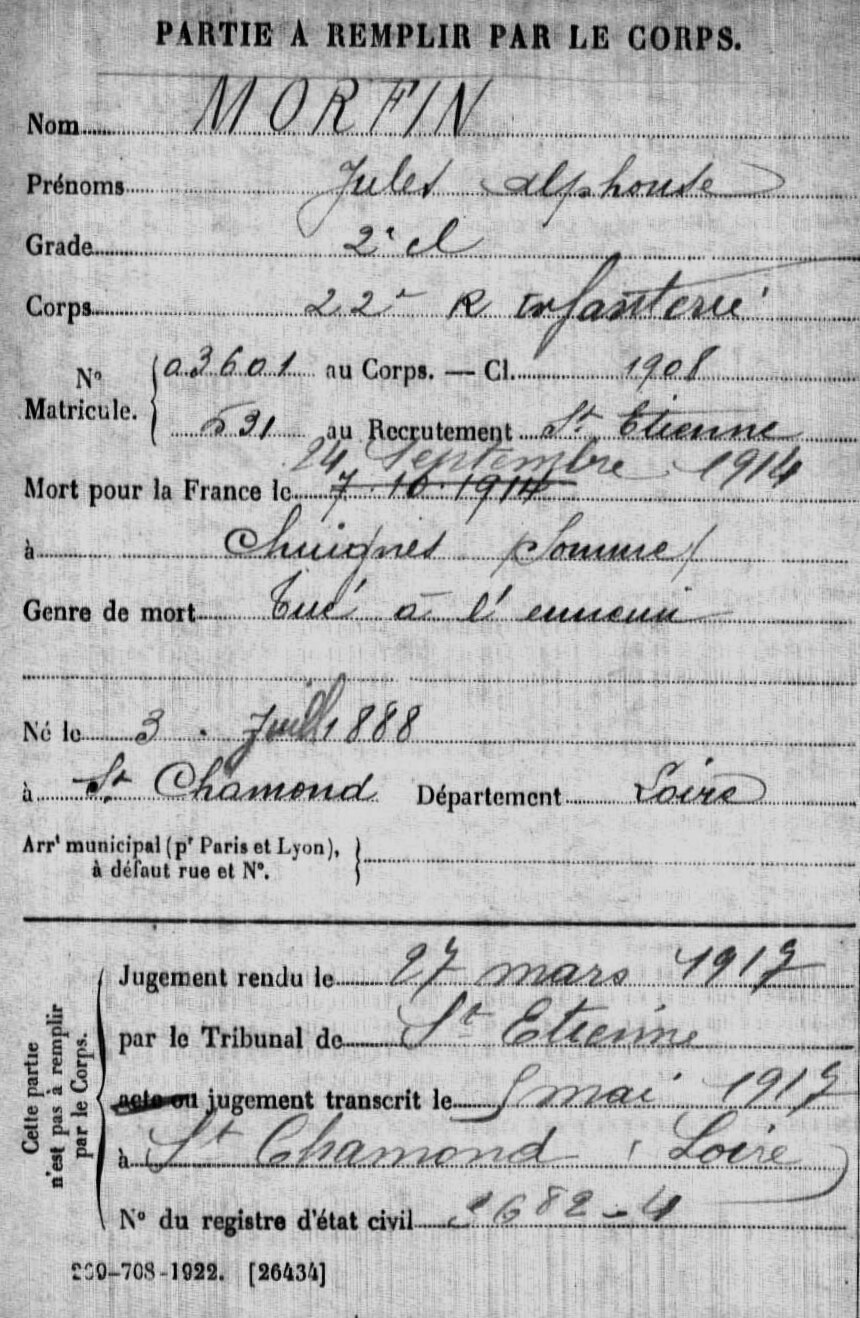 PARTIE A REMPLIR PAR LE CORPS.
Nom MORFIN
Prénoms Jules Alphonse
Grade 2e cl
Corps 22e R Infanterie
No Matricule. 03601 au Corps. — Cl. 1908
531 au Recrutement St Etienne
24 Septembre 1914
Mort pour la France le 7 10 1914
à Chuignes (Somme)
Genre de mort Tué à l'ennemi
Né le 3 Juill 1888
à St Chamond Département Loire
Arrt municipal (pr Paris et Lyon),
à défaut rue et No.
Cette partie
n'est pas à remplir
par le Corps.
Jugement rendu le 27 mars 1917
par le Tribunal de St Etienne
acte ou jugement transcrit le 5 mai 1917
à St Chamond, Loire
No du registre d'état civil
-708-1922. [26434]